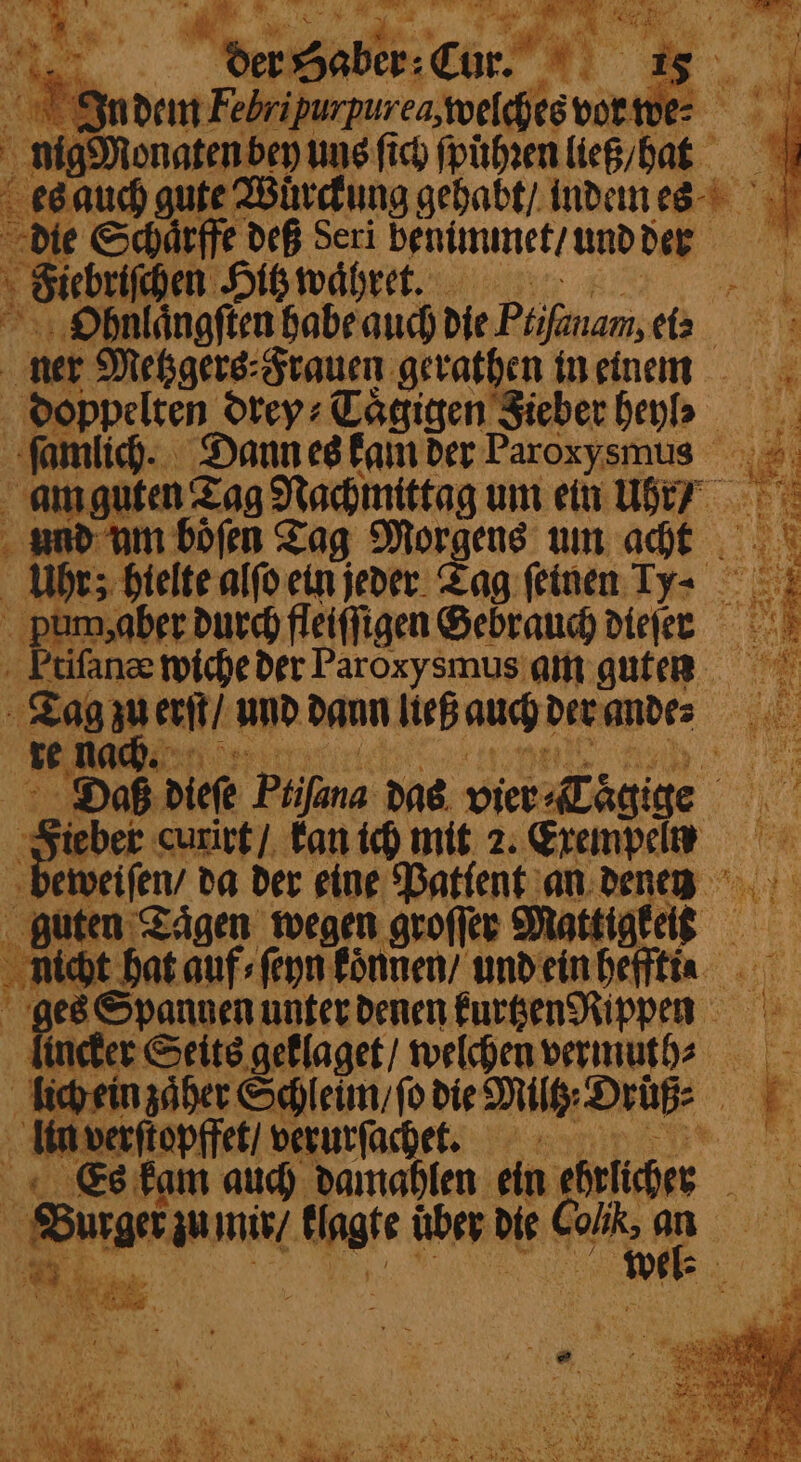 der Haber⸗Cur. 15
In dem Febri purpurea, welches vor we⸗
nig Monaten bey uns ſich ſpuͤhren ließ / hat
es auch gute Wuͤrckung gehabt / indem es
die Schaͤrffe deß Seri benimmet / und der
Fiebriſchen Hitz waͤhret.
Ohnlaͤngſten habe auch die Ptiſanam, ei⸗
ner Metzgers⸗Frauen gerathen in einem
doppelten drey⸗Taͤgigen Fieber heyl⸗
ſamlich. Dann es kam der Paroxysmus
am guten Tag Nachmittag um ein Uhr /
und am boͤſen Tag Morgens um acht
Uhr; hielte alſo ein jeder Tag ſeinen Ty-
pum, aber durch fleiſſigen Gebrauch dieſer
Ptiſanæ wiche der Paroxysmus am guten
Tag zu erſt / und dann ließ auch der ande⸗
re nach.
Daß dieſe Ptiſana das vier⸗Taͤgige
Fieber curirt / kan ich mit 2. Exempeln
beweiſen / da der eine Patient an denen
guten Taͤgen wegen groſſer Mattigkeit
nicht hat auf⸗ſeyn koͤnnen / und ein hefſti⸗
ges Spannen unter denen kurtzen Rippen
lincker Seits geklaget / welchen vermuth⸗
lich ein zaͤher Schleim / ſo die Miltz⸗Druͤß⸗
lin verſtopffet / verurſachet.
Es kam auch damahlen ein ehrlicher
Burger zu mir / klagte uͤber die Colik, an
wel⸗